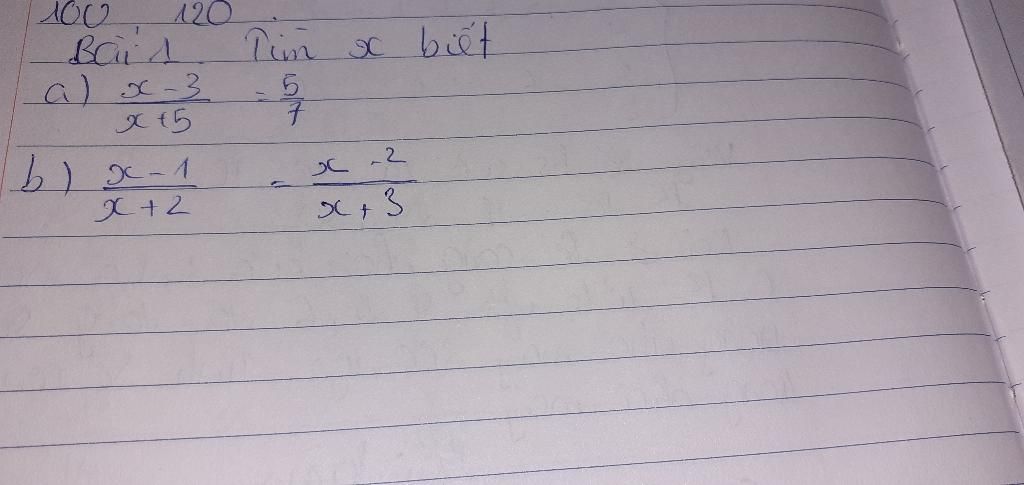 100, 120
Bài 1. Tìm x biết
a) x-3/x+5 = 5/7
b) x-1/x+2 = x-2/x+3